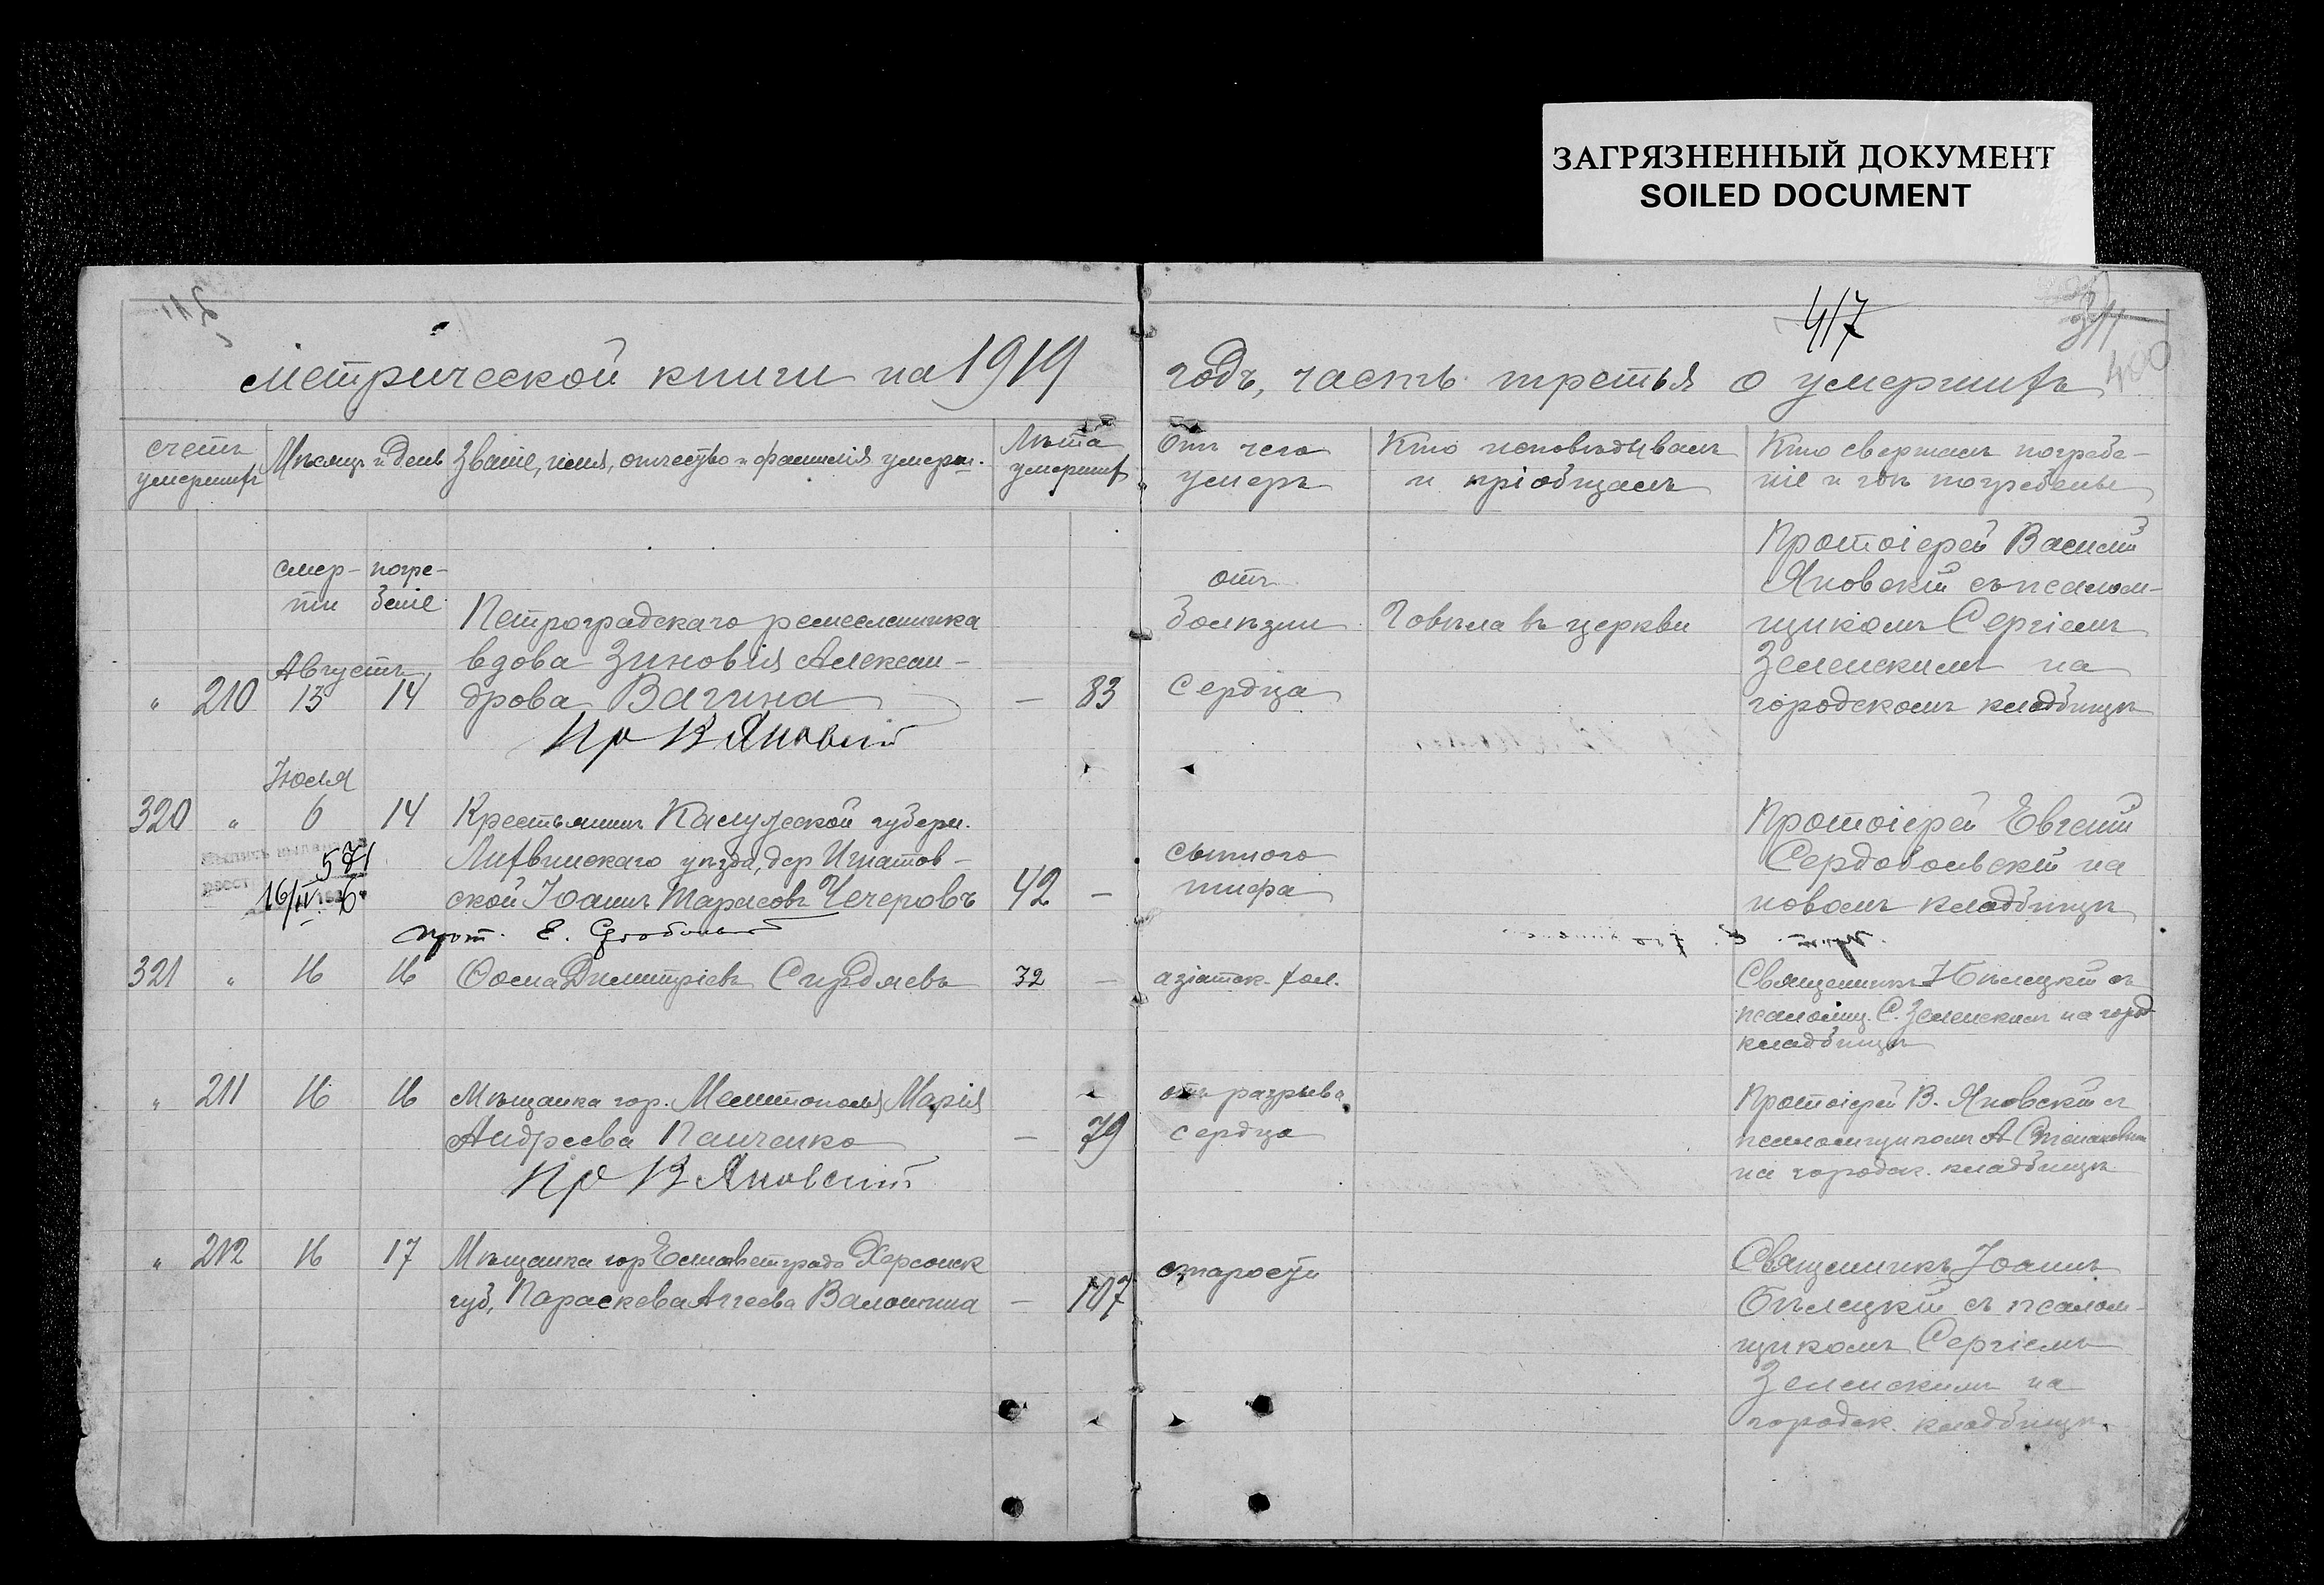 ЗАГРЯЗНЕННЫЙ ДОКУМЕНТ
SOILED DOCUMENT
417
311
400
метрической книги на 1919
годъ, часть третья о умершихъ
счетъ умершихъ
Мѣсяцъ и день
Званіе, имя, отчество и фамилія умерш.
Лѣта умершихъ
Отъ чего умеръ
Кто исповѣдывалъ и пріобщалъ
Кто свершалъ погребеніе и гдѣ погребены
смер-
ти
погре-
беніе
Августъ
" 210 13 14
Петроградскаго ремесленника
вдова Зиновія Алексан-
дрова Вагина
— 83
отъ
болѣзни
сердца
Говѣла въ церкви
Протоіерей Василій
Яновскій съ псалом-
щикомъ Сергіемъ
Зеленскимъ на
городскомъ кладбищѣ
Пр В Яновскій
Іюля
320 " 6 14
Крестьянинъ Калужской губерн.
Лихвинскаго уѣзда, дер Игнатов-
ской Іоаннъ Тарасовъ Чечеровъ
42 —
сыпного
тифа
Протоіерей Евгеній
Сердобольскій на
новомъ кладбищѣ
571
16/IV 6
прот. Е. Сердобольскій
321 " 16 16
Ѳома Димитріевъ Сирдяевъ
32 —
азіатск. хол.
Священникъ І Бѣлецкій съ
псаломщ. С. Зеленскимъ на город
кладбищѣ
" 211 16 16
Мѣщанка гор. Мелитополя Марія
Андреева Панченко
— 79
отъ разрыва
сердца
Протоіерей В. Яновскій съ
псаломщикомъ А
на городск. кладбищѣ
Пр В Яновскій
" 212 16 17
Мѣщанка гор Елисаветграда Херсонск
губ, Параскева Аггеева Валошина
— 107
старости
Священникъ Іоаннъ
Бѣлецкій съ псалом-
щикомъ Сергіемъ
Зеленскимъ на
городск. кладбищѣ.